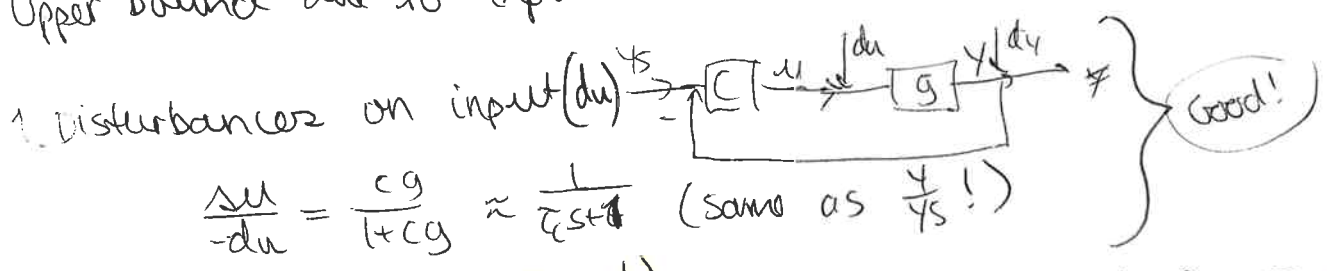 Upper bound due to inp
1. Disturbances on input (du) ys C u du g y dy y
Good!
Δu/-du = cg/1+cg ≈ 1/τcs+1 (same as y/ys!)